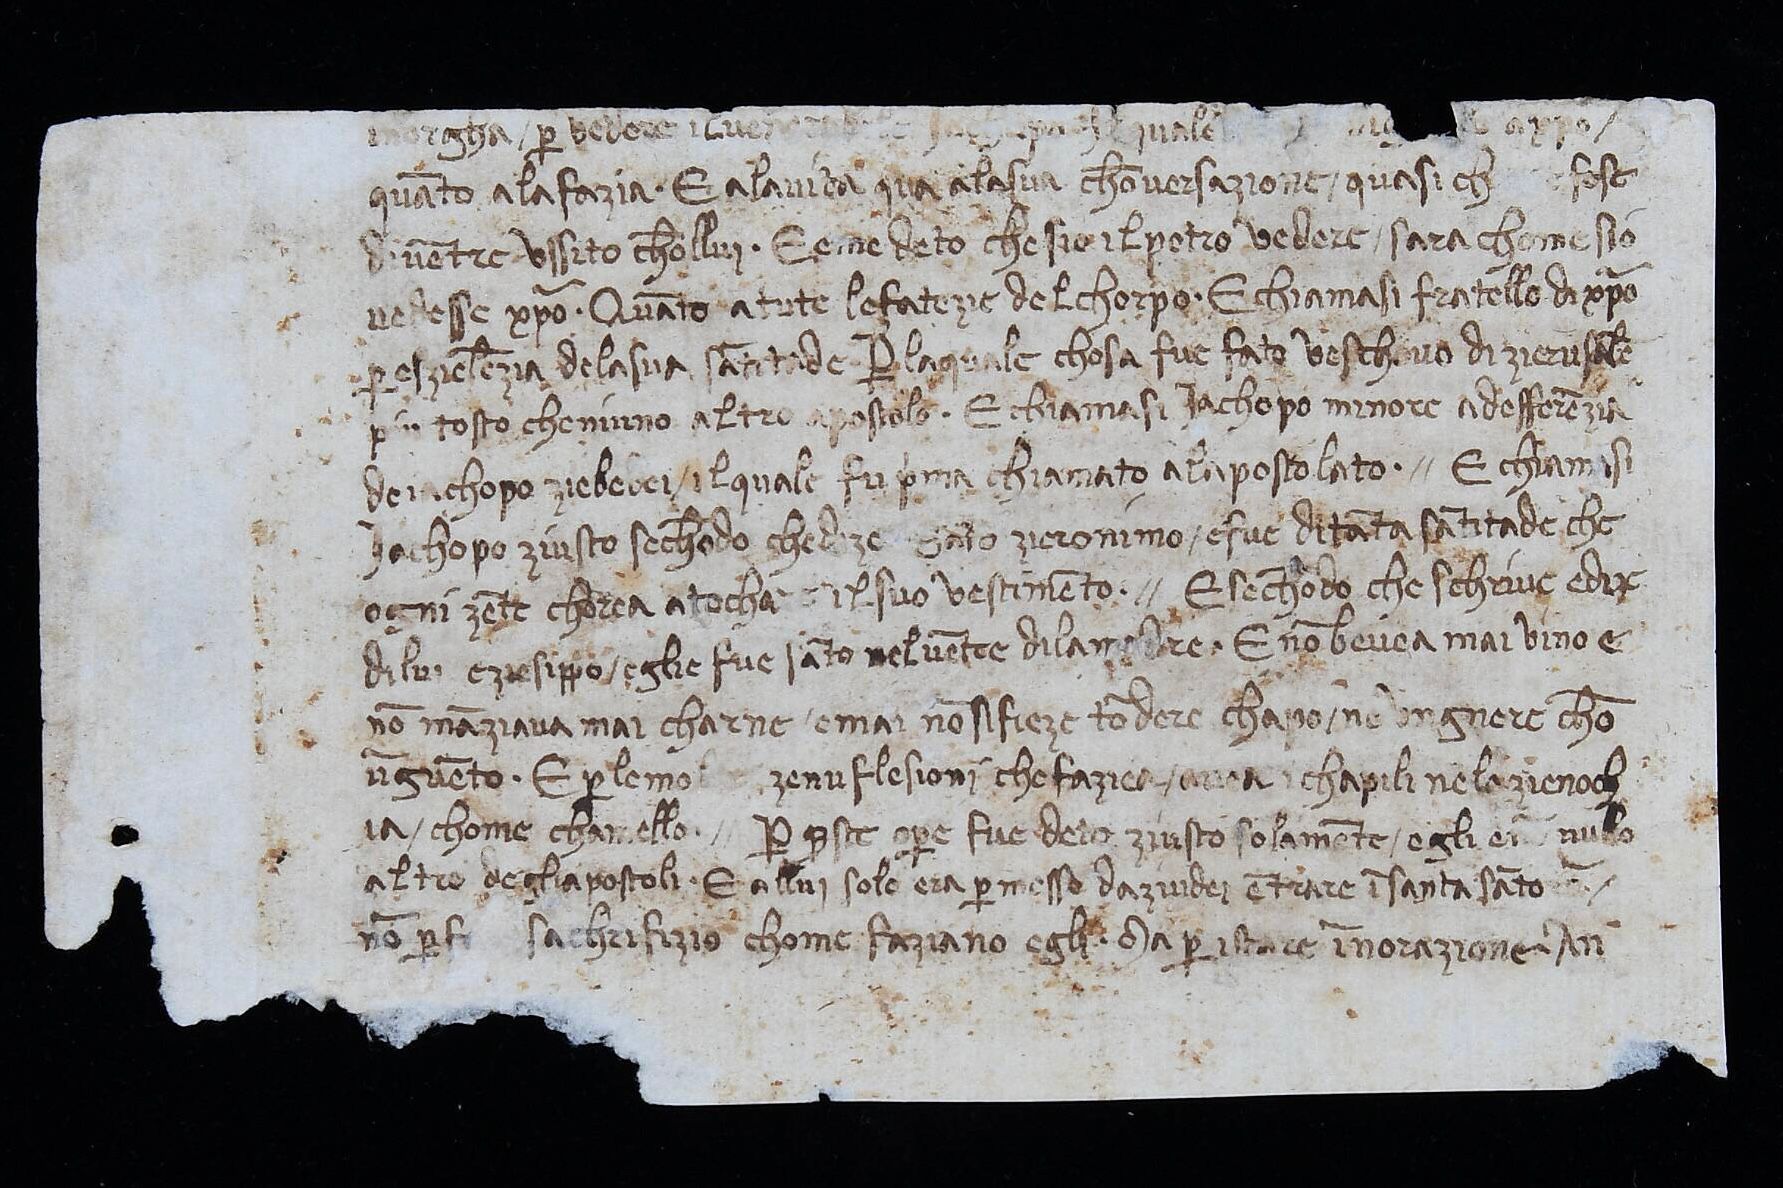 morgha / p̱ vedere il quale appo /
quãto ala fazia · E ala vita qua ala sua chõversazione / quasi ch fose
di vẽtre ussito chollui · E eme deto che sio il potro vedere / sara chome sio
vedesse xp̃o · Quãto a tute le fateze del chorpo · E chiamasi fratello di xp̃o
p̱ eszielẽzia dela sua sãtitade · P̱ la quale chosa fue fato veschovo di zierusalẽ
piu tosto che niuno altro apostolo · E chiamasi Jachopo minore a defferẽzia
de iachopo ziebedei / il quale fu p̃ma chiamato al apostolato · // E chiamasi
Jachopo ziusto sechõdo che dize sãto zieronimo / e fue di tãta sãtitade che
ogni zẽte chorea a tochare il suo vestimẽto · // E sechõdo che schrive e dize
di lui eziesippo / eglie fue sãto nel vẽtre di la madre · E nõ bevea mai vino e
nõ mãziava mai charne / e mai nõ si fieze tõdere chapo / ne ungnere chõ
ũguẽto · E p̱ le mo zenuflesioni che faziea / avea i chapili ne la zienoch
ia / chome chamello · // P̱ q̃ste op̱e fue deto ziusto solamẽte / egli e nullo
altro degli apostoli · E allui solo era p̱messo da ziudei ẽtrare ĩ santa sãto /
nõ p̱ f sachrifizio chome faziano egli · Ma p̱ istare ĩn orazione · An